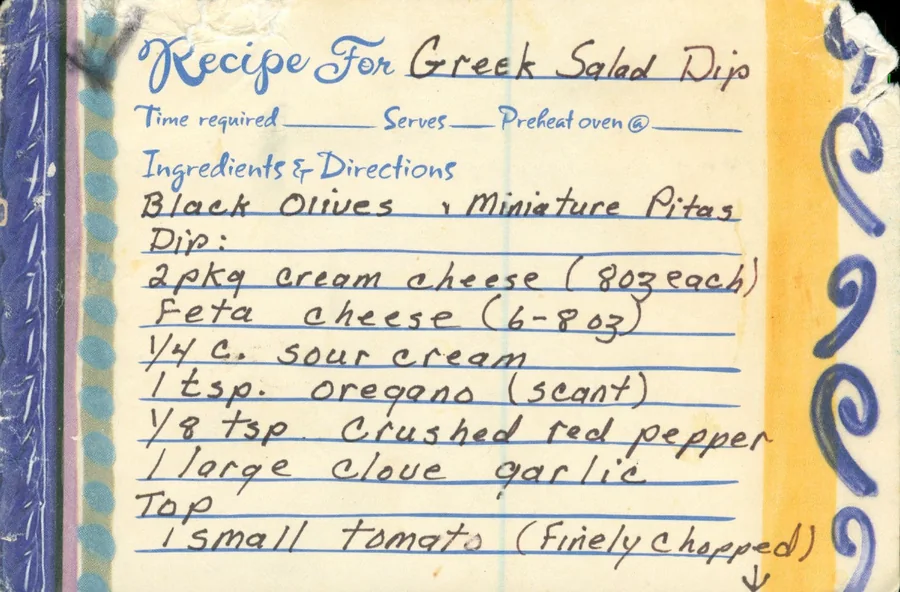 Recipe For Greek Salad Dip
Time required Serves Preheat oven @
Ingredients & Directions
Black Olives , Miniature Pitas
Dip:
2 pkg cream cheese (8oz each)
Feta cheese (6-8 oz)
1/4 c. sour cream
1 tsp. oregano (scant)
1/8 tsp. Crushed red pepper
1 large clove garlic
Top
1 small tomato (finely chopped)
↓